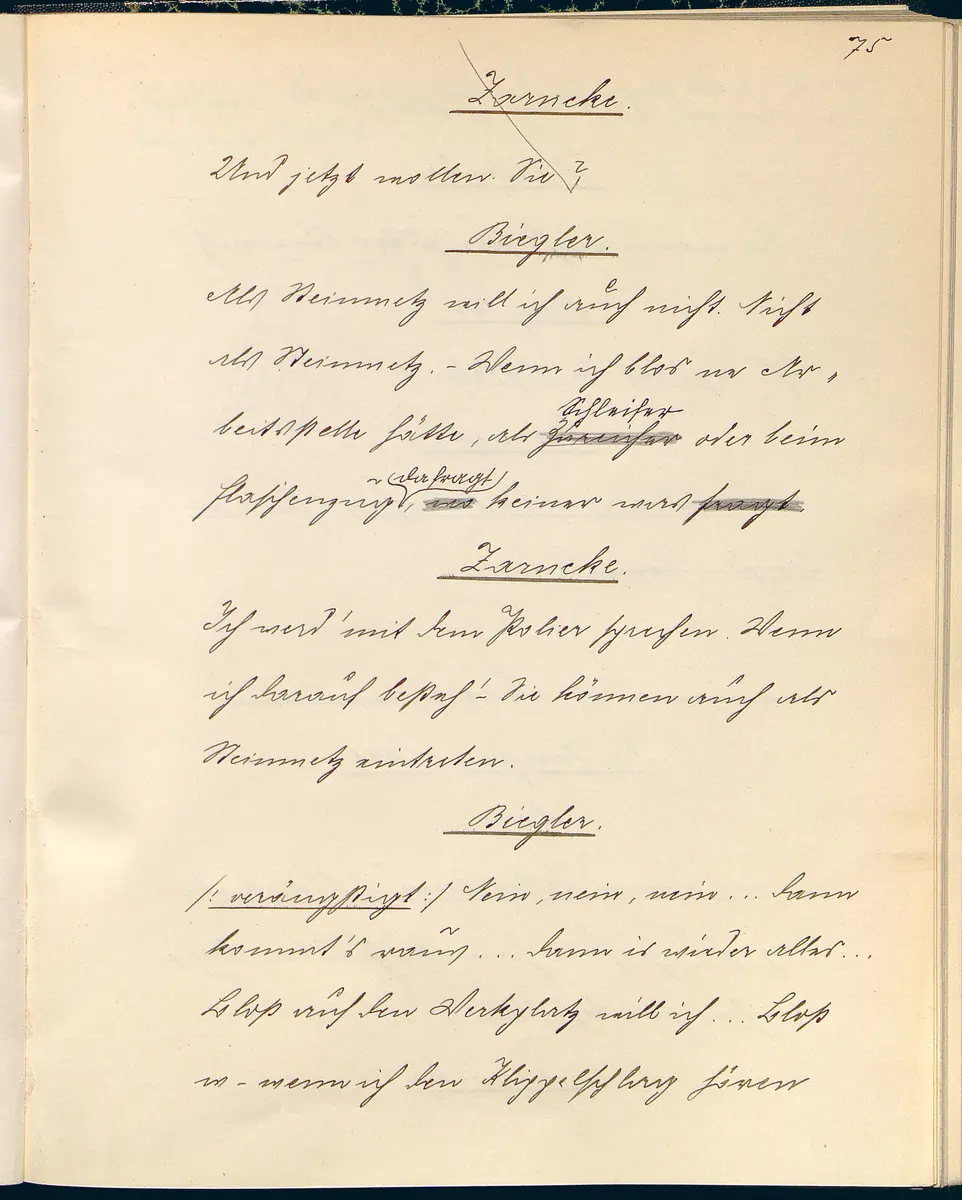 75
Zarncke.
Und jetzt wollen Sie?
Biegler.
Als Steinmetz will ich auch nicht. Nicht
als Steinmetz. – Wenn ich blos ne Ar-
Schleifer
beitsstelle hätte, als Zureicher oder beim
da fragt
Flaschenzug, wo keiner was fragt.
Zarncke.
Ich werd' mit dem Polier sprechen. Wenn
ich darauf besteh'– Sie können auch als
Steinmetz eintreten.
Biegler.
/: verängstigt :/ Nein, nein, nein ... dann
kommt's raus ... dann is wieder alles ...
Blos auf den Werkplatz will ich ... Blos
w – wenn ich den Klippelschlag hören